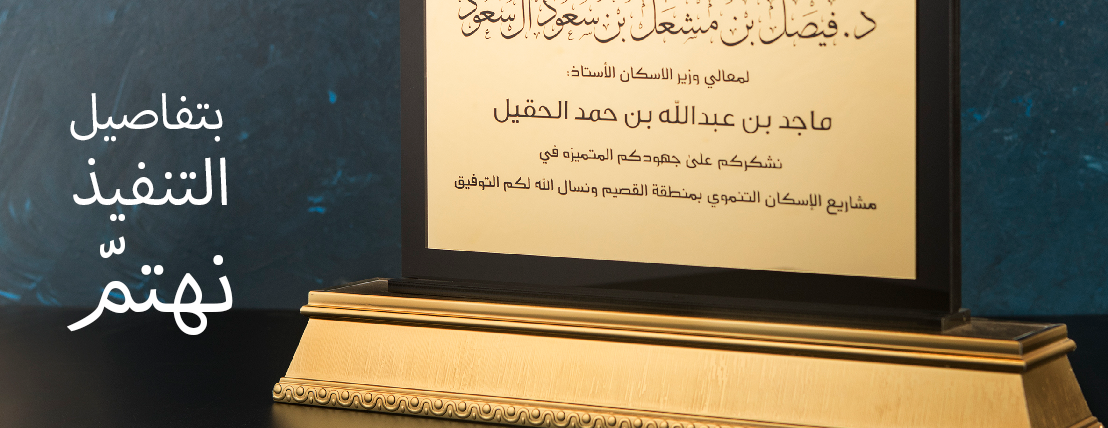 بتفاصيل
التنفيذ
نهتمّ
د. فيصل بن مشعل بن سعود آل سعود
لمعالي وزير الاسكان الأستاذ:
ماجد بن عبدالله بن حمد الحقيل
نشكركم على جهودكم المتميزه في
مشاريع الإسكان التنموي بمنطقة القصيم ونسال الله لكم التوفيق